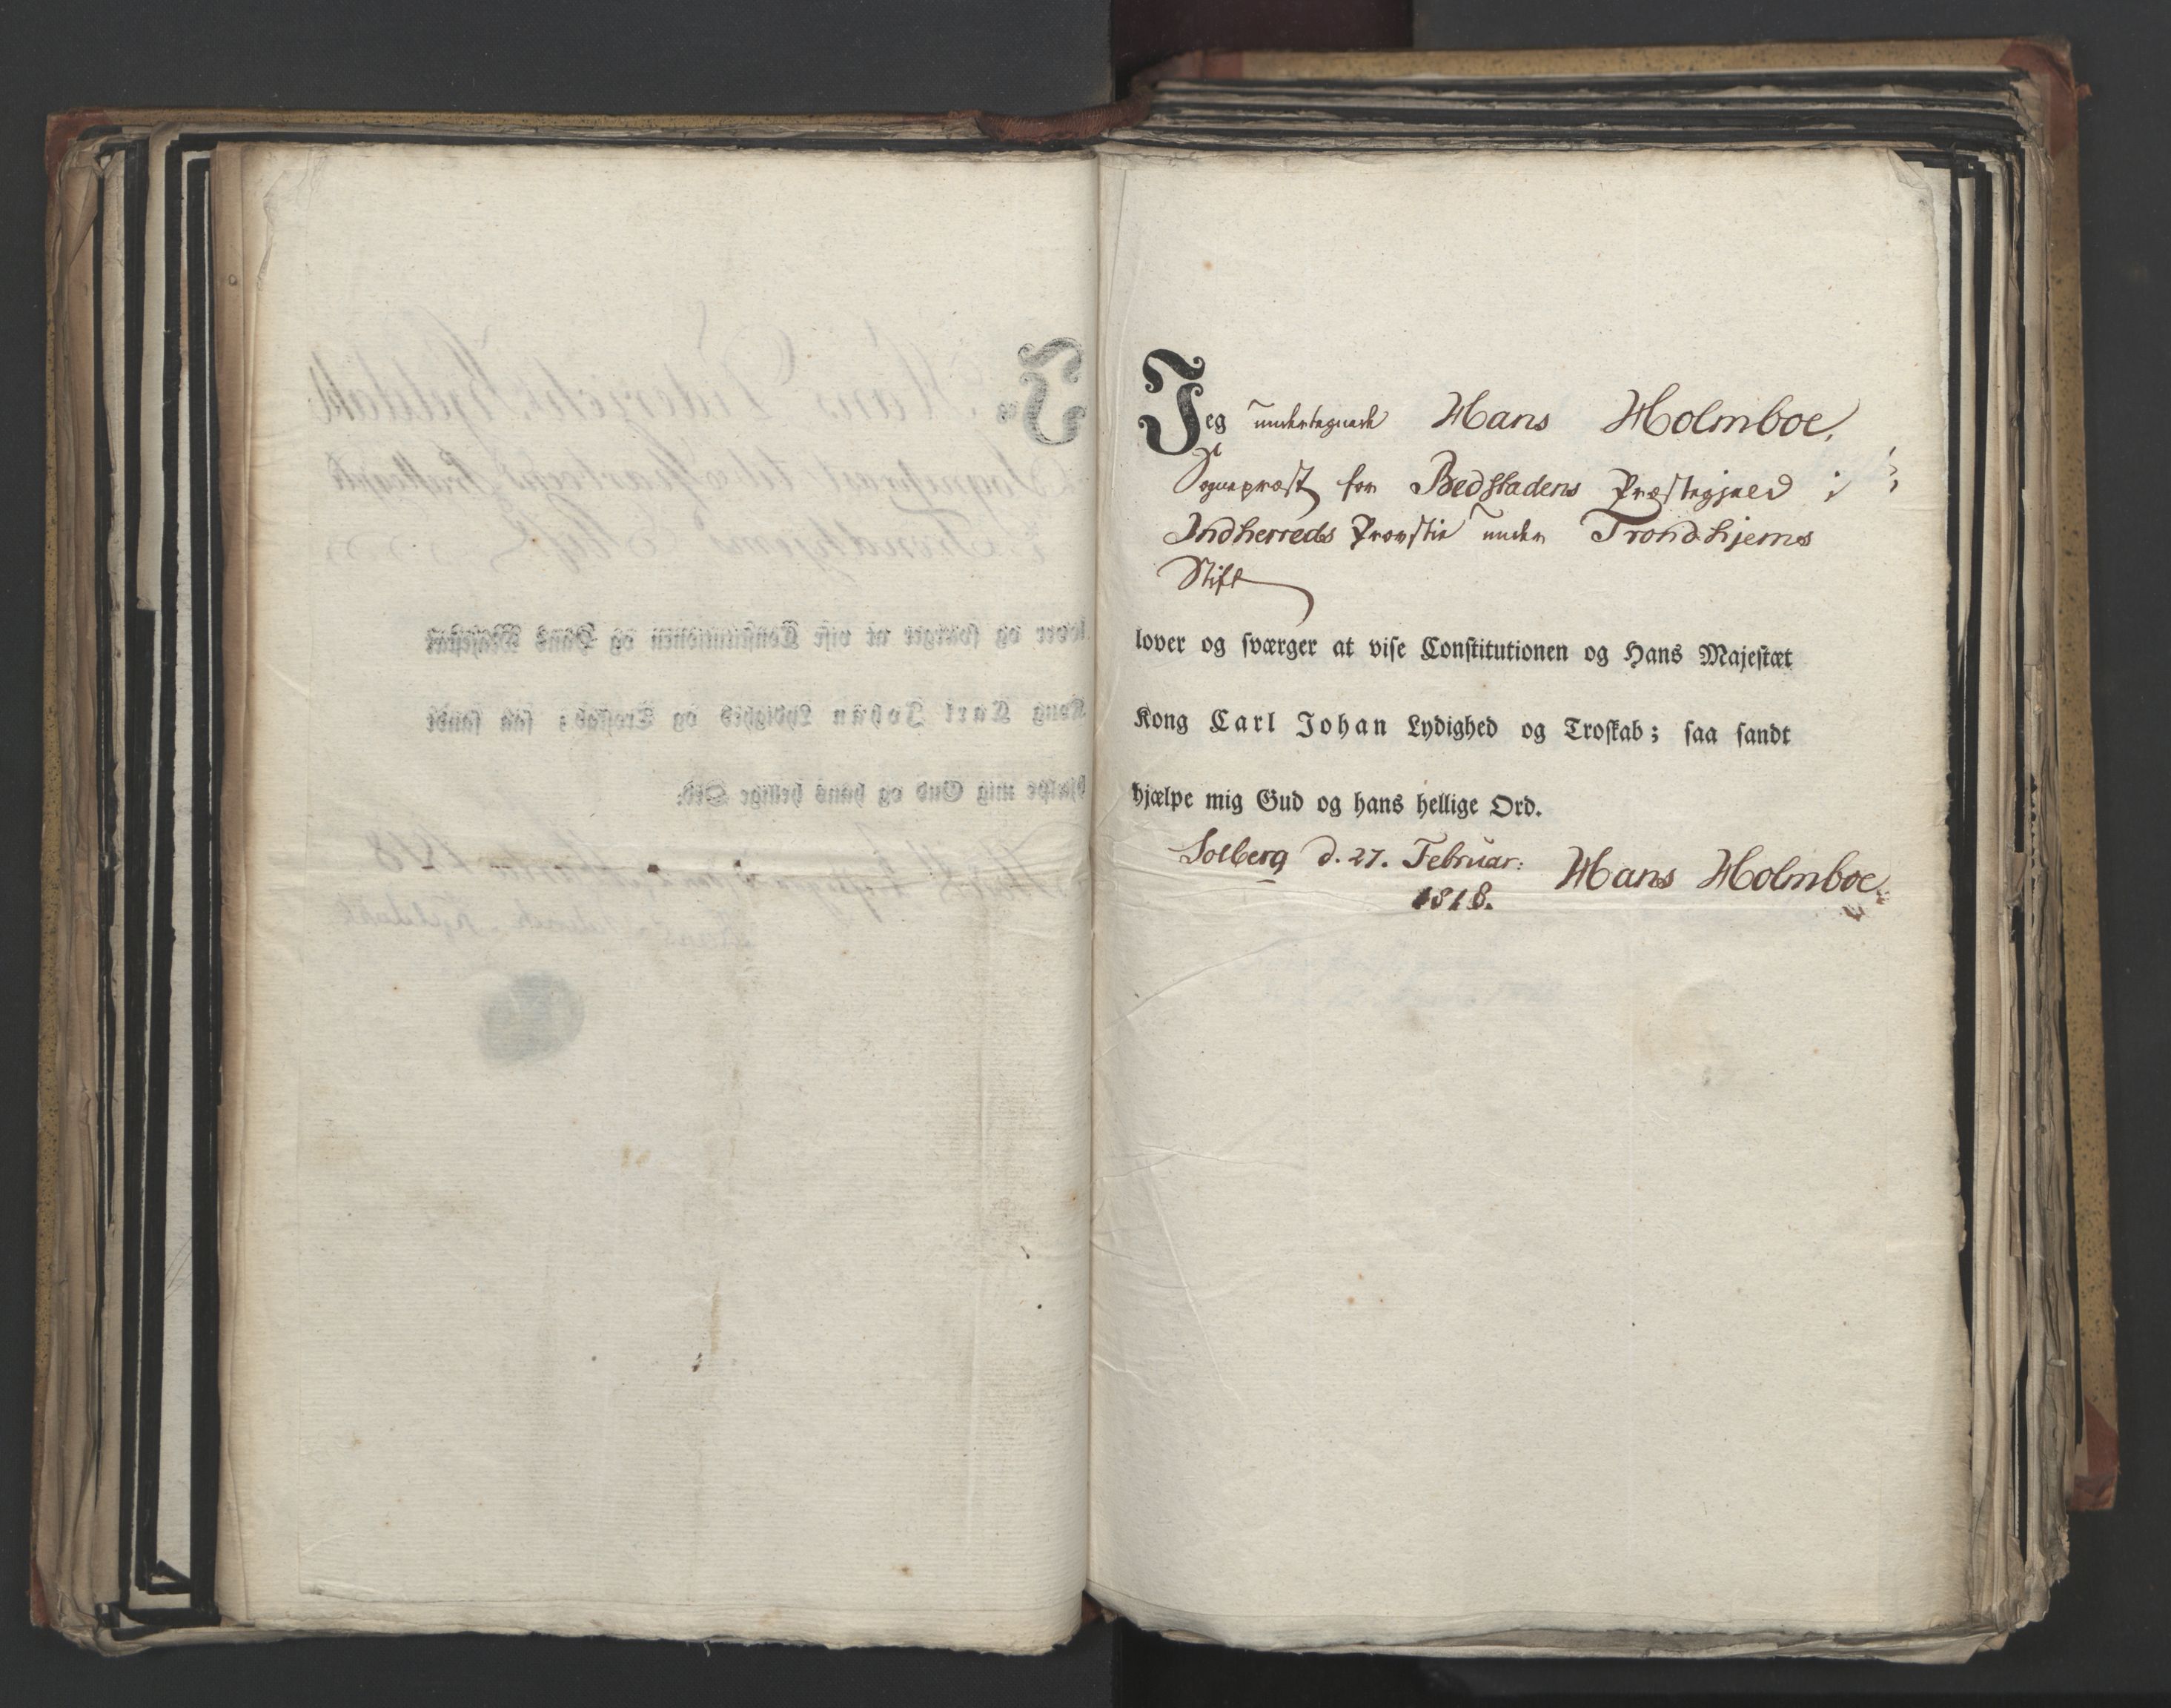 Jeg undertegnede Hans Holmboe,
Sognepræst for Bedstadens Præstegjeld i
Indherreds Provstie under Trondhjems
Stift
lover og sværger at vise Constitutionen og Hans Majestæt
Kong Carl Johan Lydighed og Troskab; saa sandt
hjælpe mig Gud og hans hellige Ord.
Solberg d. 27. Februar: Hans Holmboe.
1818.